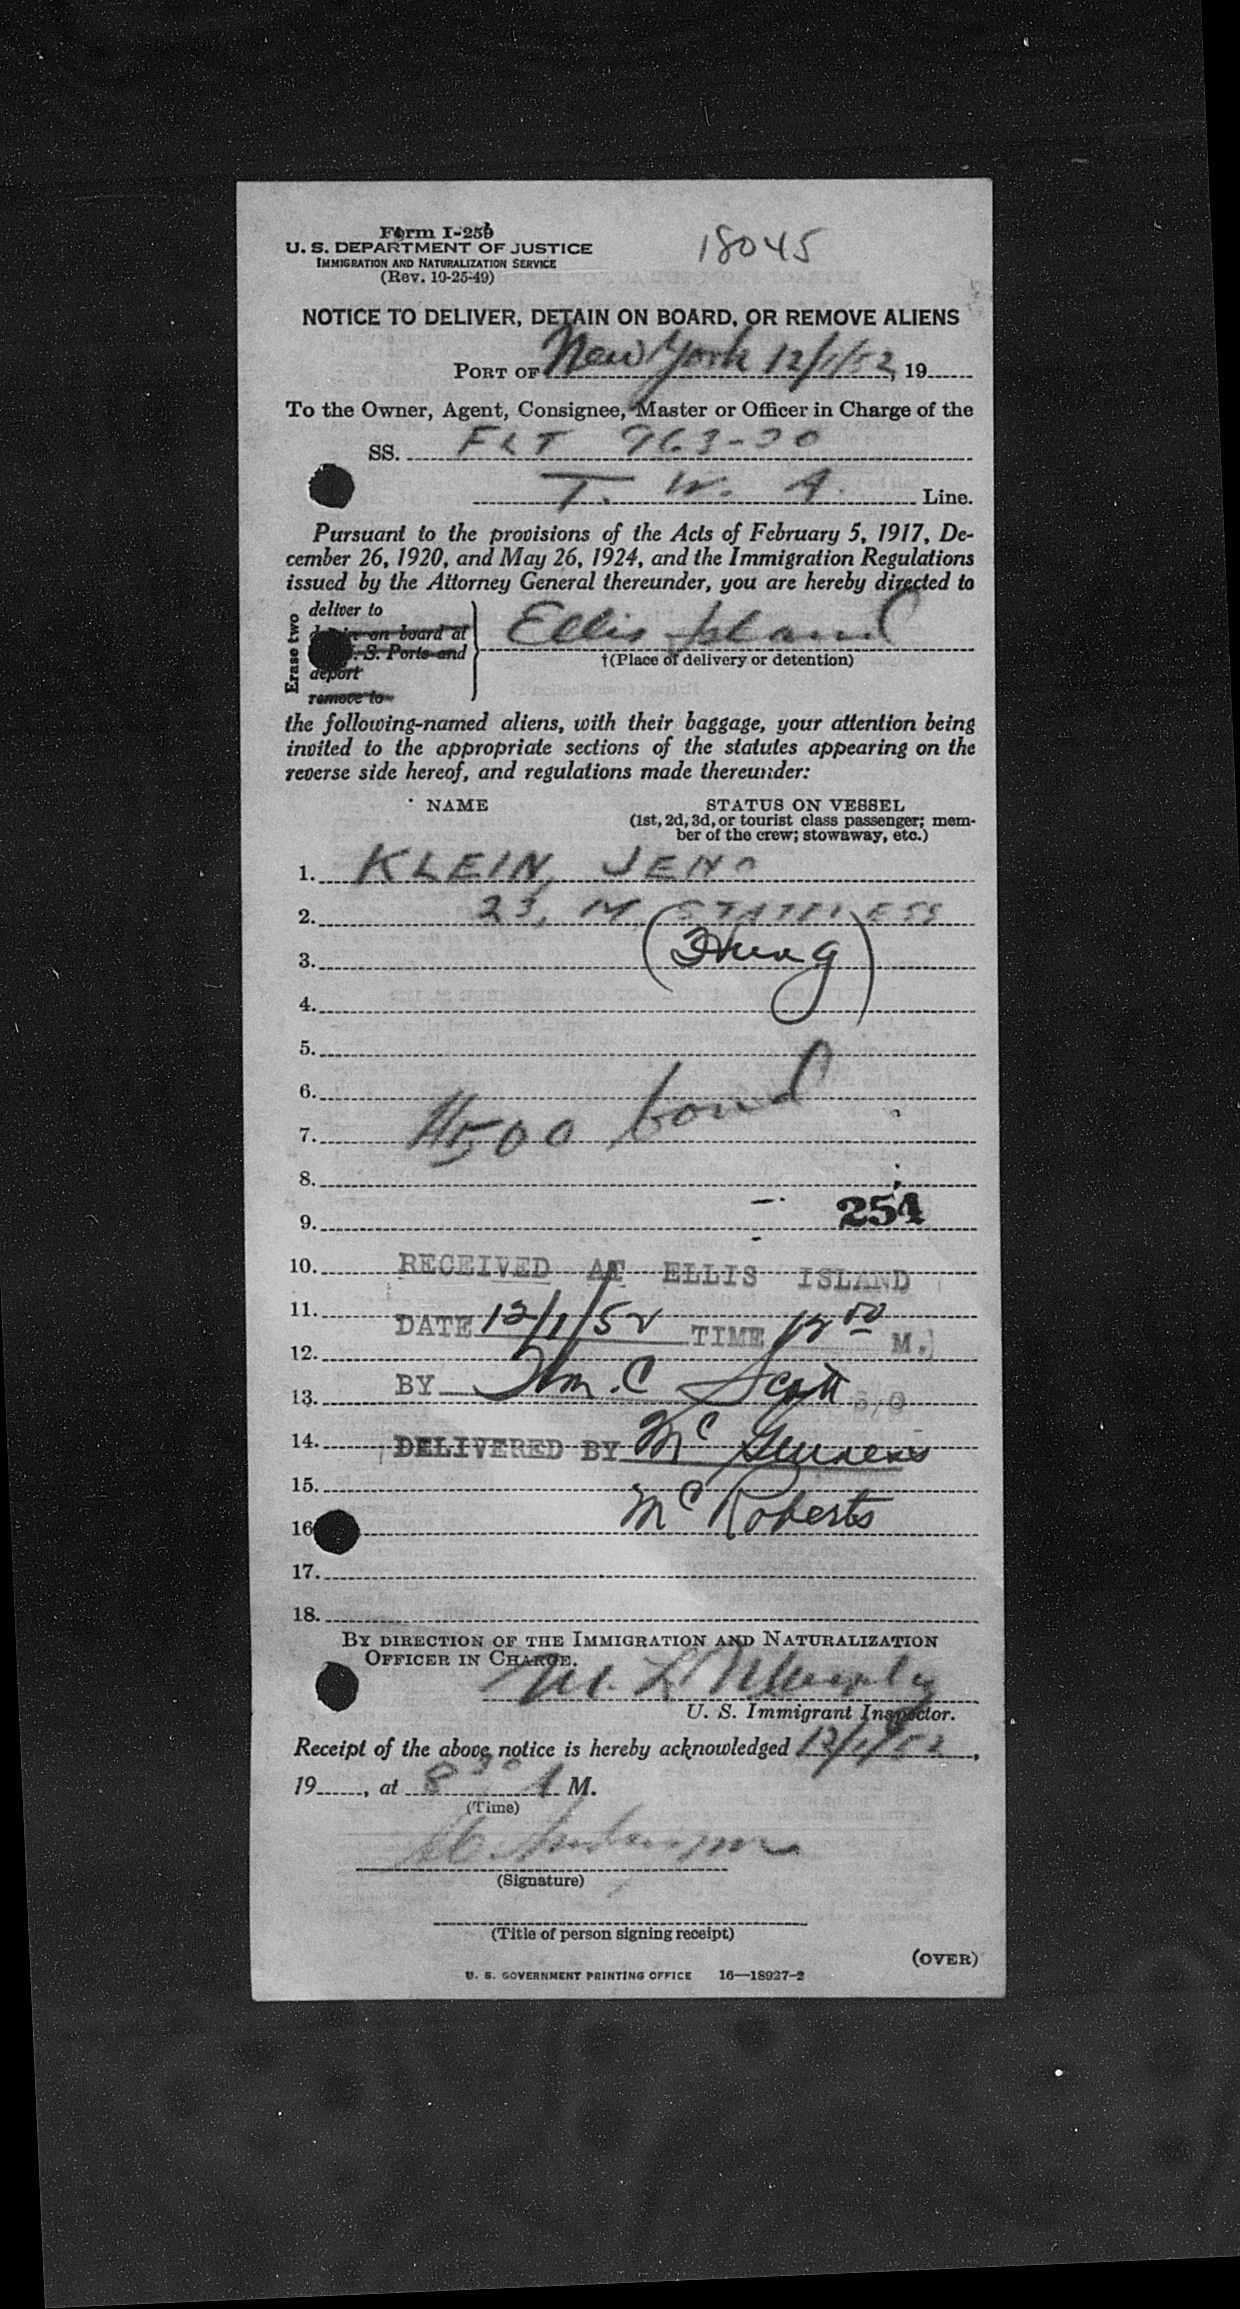 Form I-259
U. S. DEPARTMENT OF JUSTICE
IMMIGRATION AND NATURALIZATION SERVICE
(Rev. 10-25-49)
18045
NOTICE TO DELIVER, DETAIN ON BOARD, OR REMOVE ALIENS
PORT OF New York 12/1/52, 19
To the Owner, Agent, Consignee, Master or Officer in Charge of the
SS. FLT 963-30
T. W. A. Line.
Pursuant to the provisions of the Acts of February 5, 1917, De-
cember 26, 1920, and May 26, 1924, and the Immigration Regulations
issued by the Attorney General thereunder, you are hereby directed to
Erase two
deliver to
on board at
S. Ports and
deport
remove to
Ellis Island
†(Place of delivery or detention)
the following-named aliens, with their baggage, your attention being
invited to the appropriate sections of the statutes appearing on the
reverse side hereof, and regulations made thereunder:
NAME
STATUS ON VESSEL
(1st, 2d, 3d, or tourist class passenger; mem-
ber of the crew; stowaway, etc.)
1. KLEIN, JENO
2. 23, M, STATELESS
3.
4.
5.
6.
7. $500 bond
8.
9. 254
10. RECEIVED AT ELLIS ISLAND
11.
DATE 12/1/52 TIME 12 00 M.
12.
BY Wm. C Scott S/O
13.
14. DELIVERED BY
15.
Mc Roberts
16
17.
18.
BY DIRECTION OF THE IMMIGRATION AND NATURALIZATION
OFFICER IN CHARGE.
M. L. Murphy
U. S. Immigrant Inspector.
Receipt of the above notice is hereby acknowledged 12/1/52,
19, at 8 30 A M.
(Time)
(Signature)
(Title of person signing receipt)
(OVER)
U. S. GOVERNMENT PRINTING OFFICE 16—18927-2